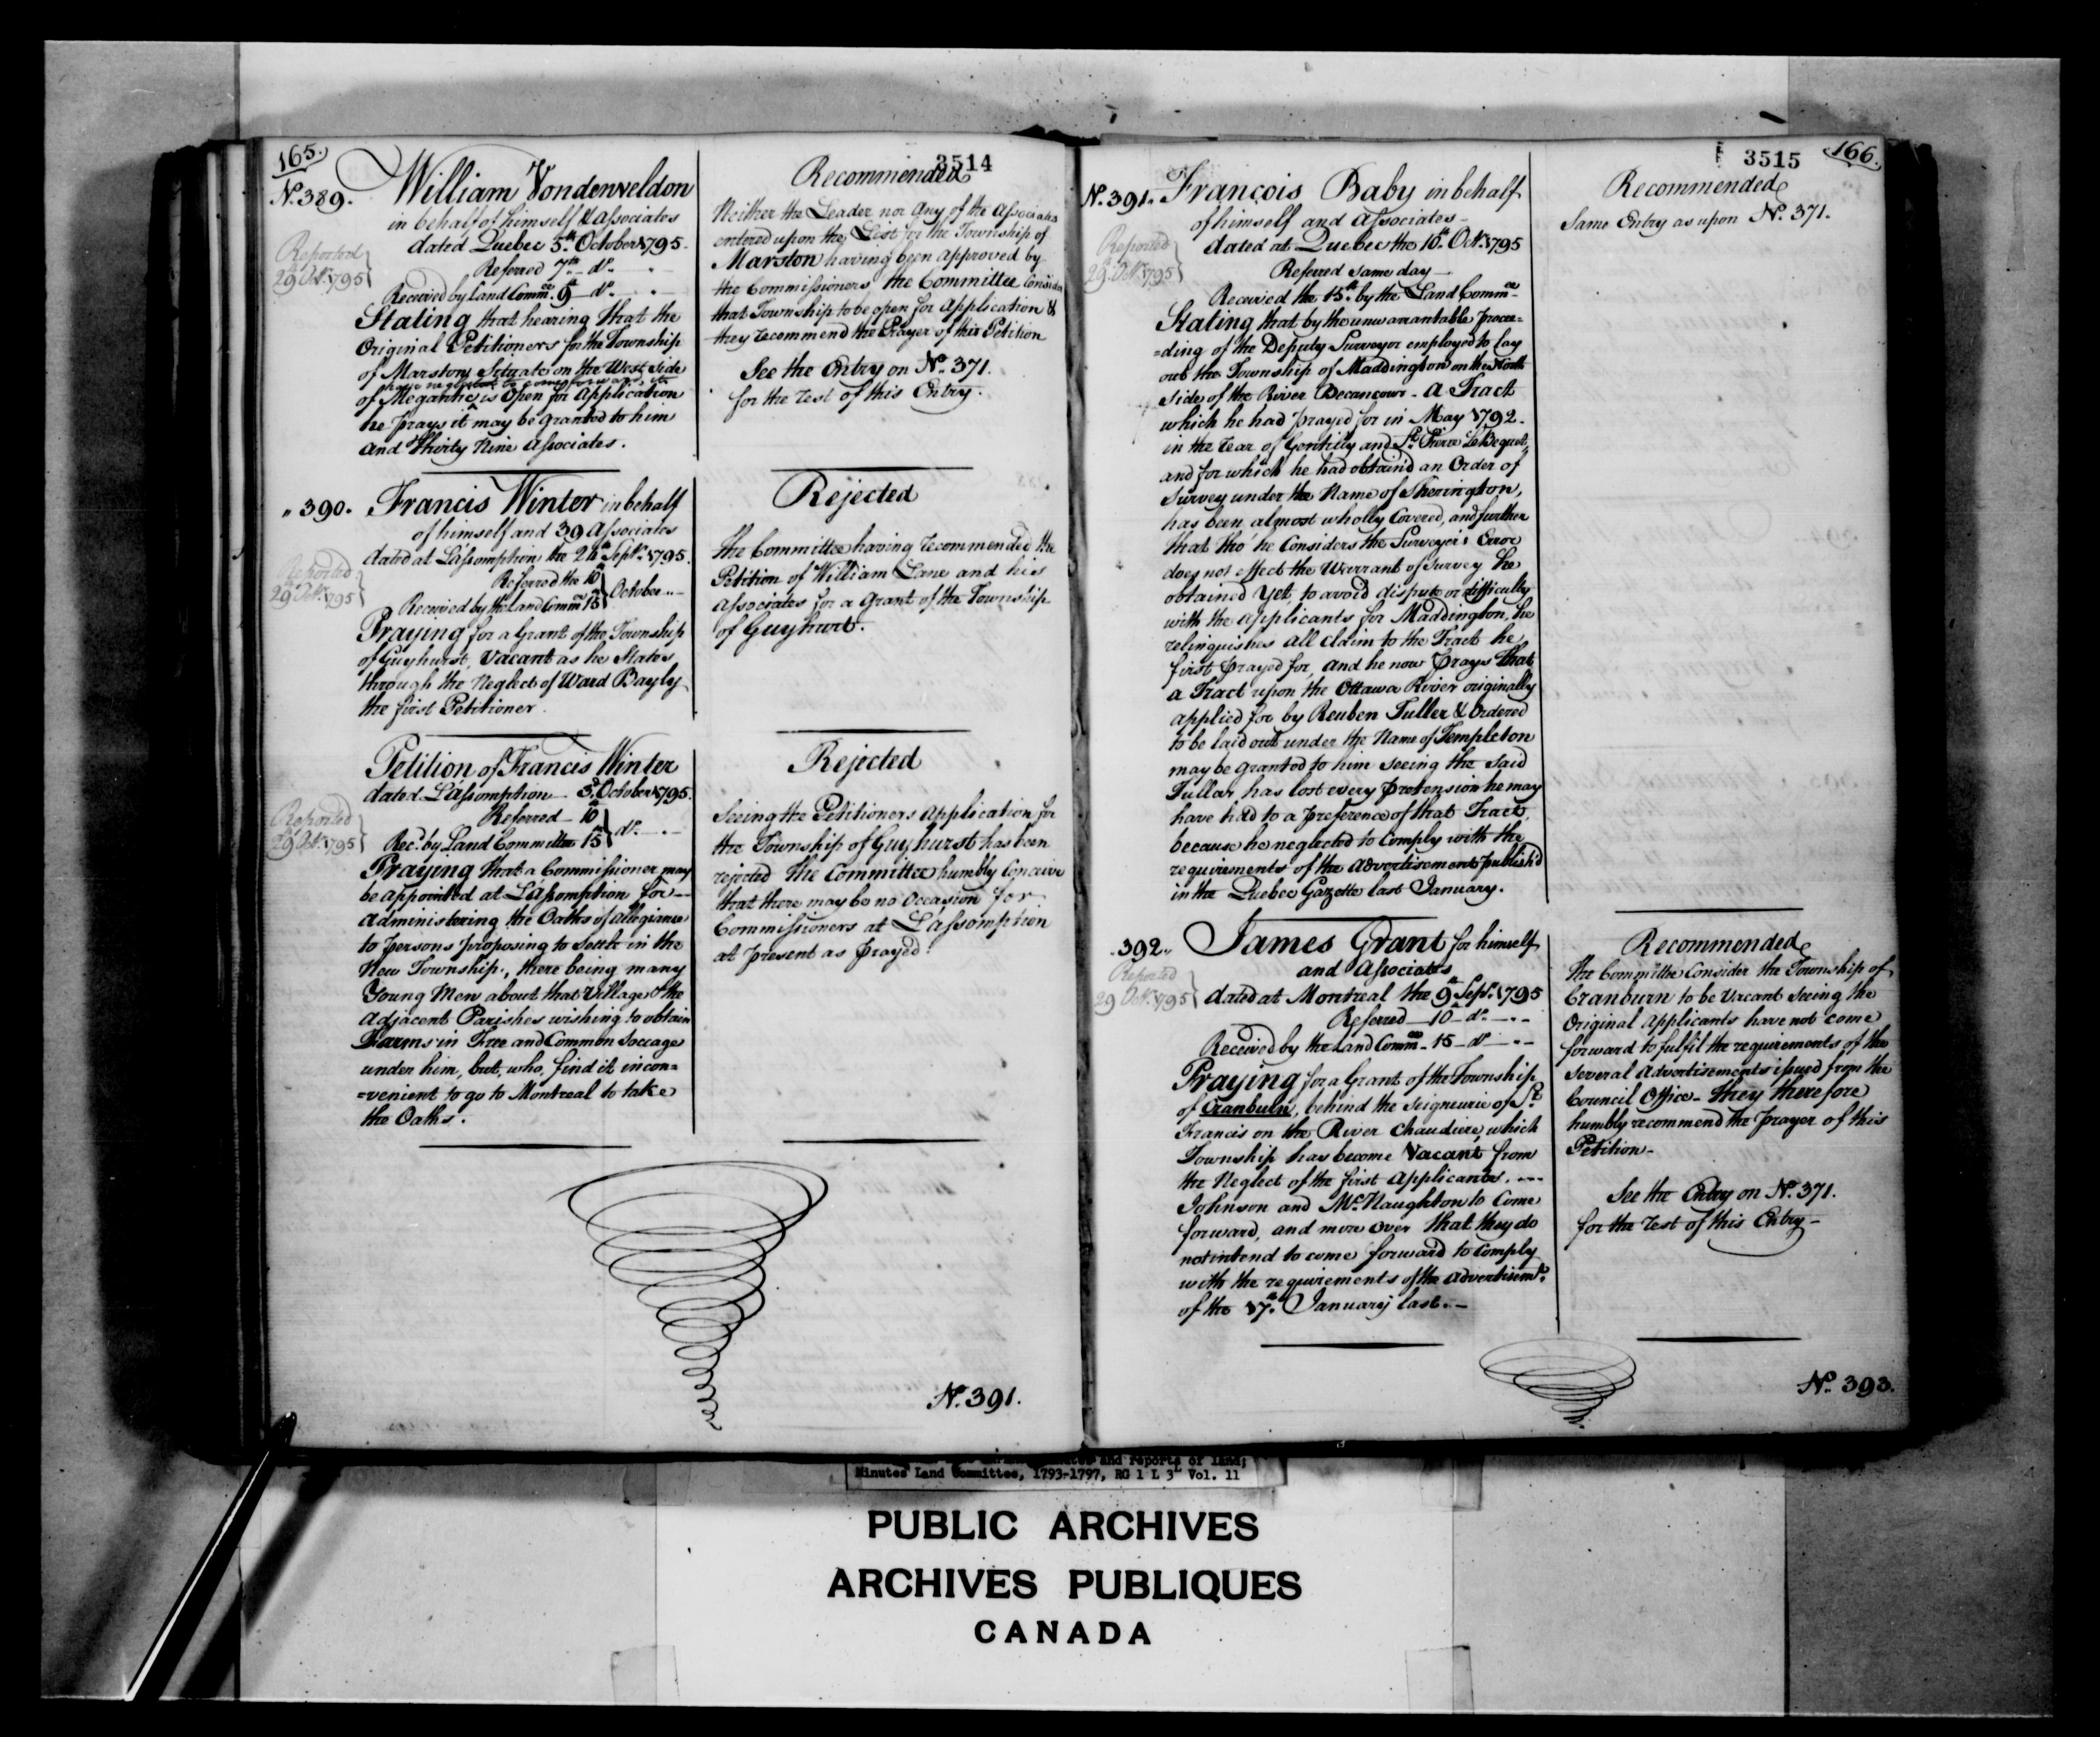 165.
3514
No. 389. William Vondenveldon
in behalf of himself & associates
dated Quebec 5th October 1795.
Reported
29 Octr. 1795
Referred 7th do.
Received by Land Commee. 9th do.
Stating that hearing that the
Original Petitioners for the Township
of Marston, Situate on the West Side
have neglected to come forward, it
of Megantic is Open for Application
he prays it may be granted to him
and Thirty Nine Associates.
Recommended
Neither the Leader nor any of the Associates
entered upon the List for the Township of
Marston having been approved by
the Commissioners the Committee Consider
that Township to be open for Application &
they recommend the Prayer of this Petition
See the Entry on No. 371.
for the rest of this Entry.
" 390. Francis Winter in behalf
of himself and 39 Associates
dated at L'assomption the 24th Septr. 1795.
Reported
29 Octr. 1795
Referred the 10th
Received by the Land Commee 15th October
Praying for a Grant of the Township
of Guyhurst, Vacant as he States
through the Neglect of Ward Bayly
the first Petitioner.
Rejected
The Committee having recommended the
Petition of William Lane and his
Associates for a Grant of the Township
of Guyhurst.
Petition of Francis Winter
dated L'assomption 3d October 1795.
Reported
29 Octr. 1795
Referred 10th
Recd. by Land Committee 15th do.
Praying that a Commissioner may
be appointed at L'assomption for
administering the Oaths of Allegiance
to persons proposing to Settle in the
New Township, there being many
Young Men about that Village & the
Adjacent Parishes wishing to obtain
Farms in Free and Common Soccage
under him, but, who, find it incon=
=venient to go to Montreal to take
the Oaths.
Rejected
Seeing the Petitioners Application for
the Township of Guyhurst has been
rejected the Committee humbly Conceive
that there may be no Occasion for
Commissioners at L'assomption
at present as Prayed.
No. 391.
3515
166.
No. 391. François Baby in behalf
of himself and Associates
dated at Quebec the 10th Octr. 1795
Reported
29 Octr. 1795
Referred same day
Received the 15th by the Land Commee
Stating that by the unwarrantable procee=
=ding of the Deputy Surveyor employed to lay
out the Township of Maddington on the North
side of the River Becancour - a Tract
which he had prayed for in May 1792.
in the rear of Gentilly and St. Pierre Le Bequet,
and for which he had obtain'd an Order of
Survey under the Name of Sherington,
has been almost wholly Covered, and further
that tho' he Considers the Surveyor's Error
does not effect the Warrant of Survey he
obtained Yet, to avoid dispute or difficulty
with the applicants for Maddington, he
relinquishes all Claim to the Tract he
first prayed for, and he now Prays that
a Tract upon the Ottawa River originally
applied for by Reuben Fuller & Ordered
to be laid out under the Name of Templeton
may be granted to him seeing the said
Fuller has lost every pretension he may
have had to a preference of that Tract,
because he neglected to Comply with the
requirements of the Advertisement publish'd
in the Quebec Gazette last January.
Recommended
Same Entry as upon No. 371.
392. James Grant for himself
and Associates
dated at Montreal the 9th Sepr. 1795
Reported
29 Octr. 1795
Referred 10 do.
Received by the Land Commee 15 do
Praying for a Grant of the Township
of Cranburn, behind the Seigneurie of St.
Francis on the River Chaudiere, which
Township has become Vacant from
the Neglect of the first Applicants,
Johnson and McNaughton to Come
forward, and more over that they do
not intend to come forward to Comply
with the requirements of the Advertisemt.
of the 17th January last.
Recommended
The Committee Consider the Township of
Cranburn to be Vacant seeing the
Original Applicants have not come
forward to fulfil the requirements of the
several Advertisements issued from the
Council Office - They therefore
humbly recommend the prayer of this
Petition -
See the Entry on No. 371.
for the rest of this Entry -
No. 393.
and reports of land;
Minutes Land Committee, 1793-1797, RG 1 L 3L Vol. 11
PUBLIC ARCHIVES
ARCHIVES PUBLIQUES
CANADA